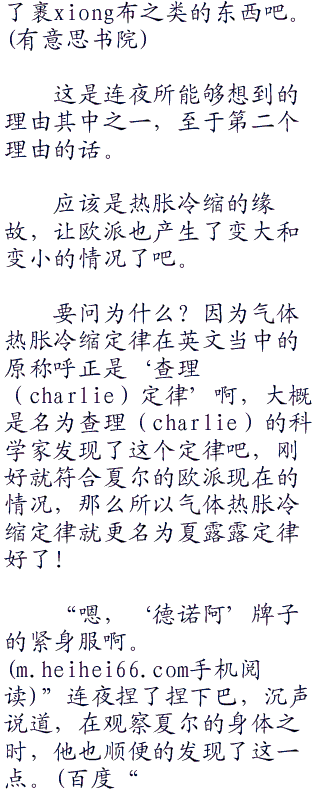 了裹xiong布之类的东西吧。
(有意思书院)
这是连夜所能够想到的
理由其中之一，至于第二个
理由的话。
应该是热胀冷缩的缘
故，让欧派也产生了变大和
变小的情况了吧。
要问为什么？因为气体
热胀冷缩定律在英文当中的
原称呼正是‘查理
（charlie）定律’啊，大概
是名为查理（charlie）的科
学家发现了这个定律吧，刚
好就符合夏尔的欧派现在的
情况，那么所以气体热胀冷
缩定律就更名为夏露露定律
好了！
“嗯，‘德诺阿’牌子
的紧身服啊。
(m.heihei66.com手机阅
读)”连夜捏了捏下巴，沉声
说道，在观察夏尔的身体之
时，他也顺便的发现了这一
点。(百度“